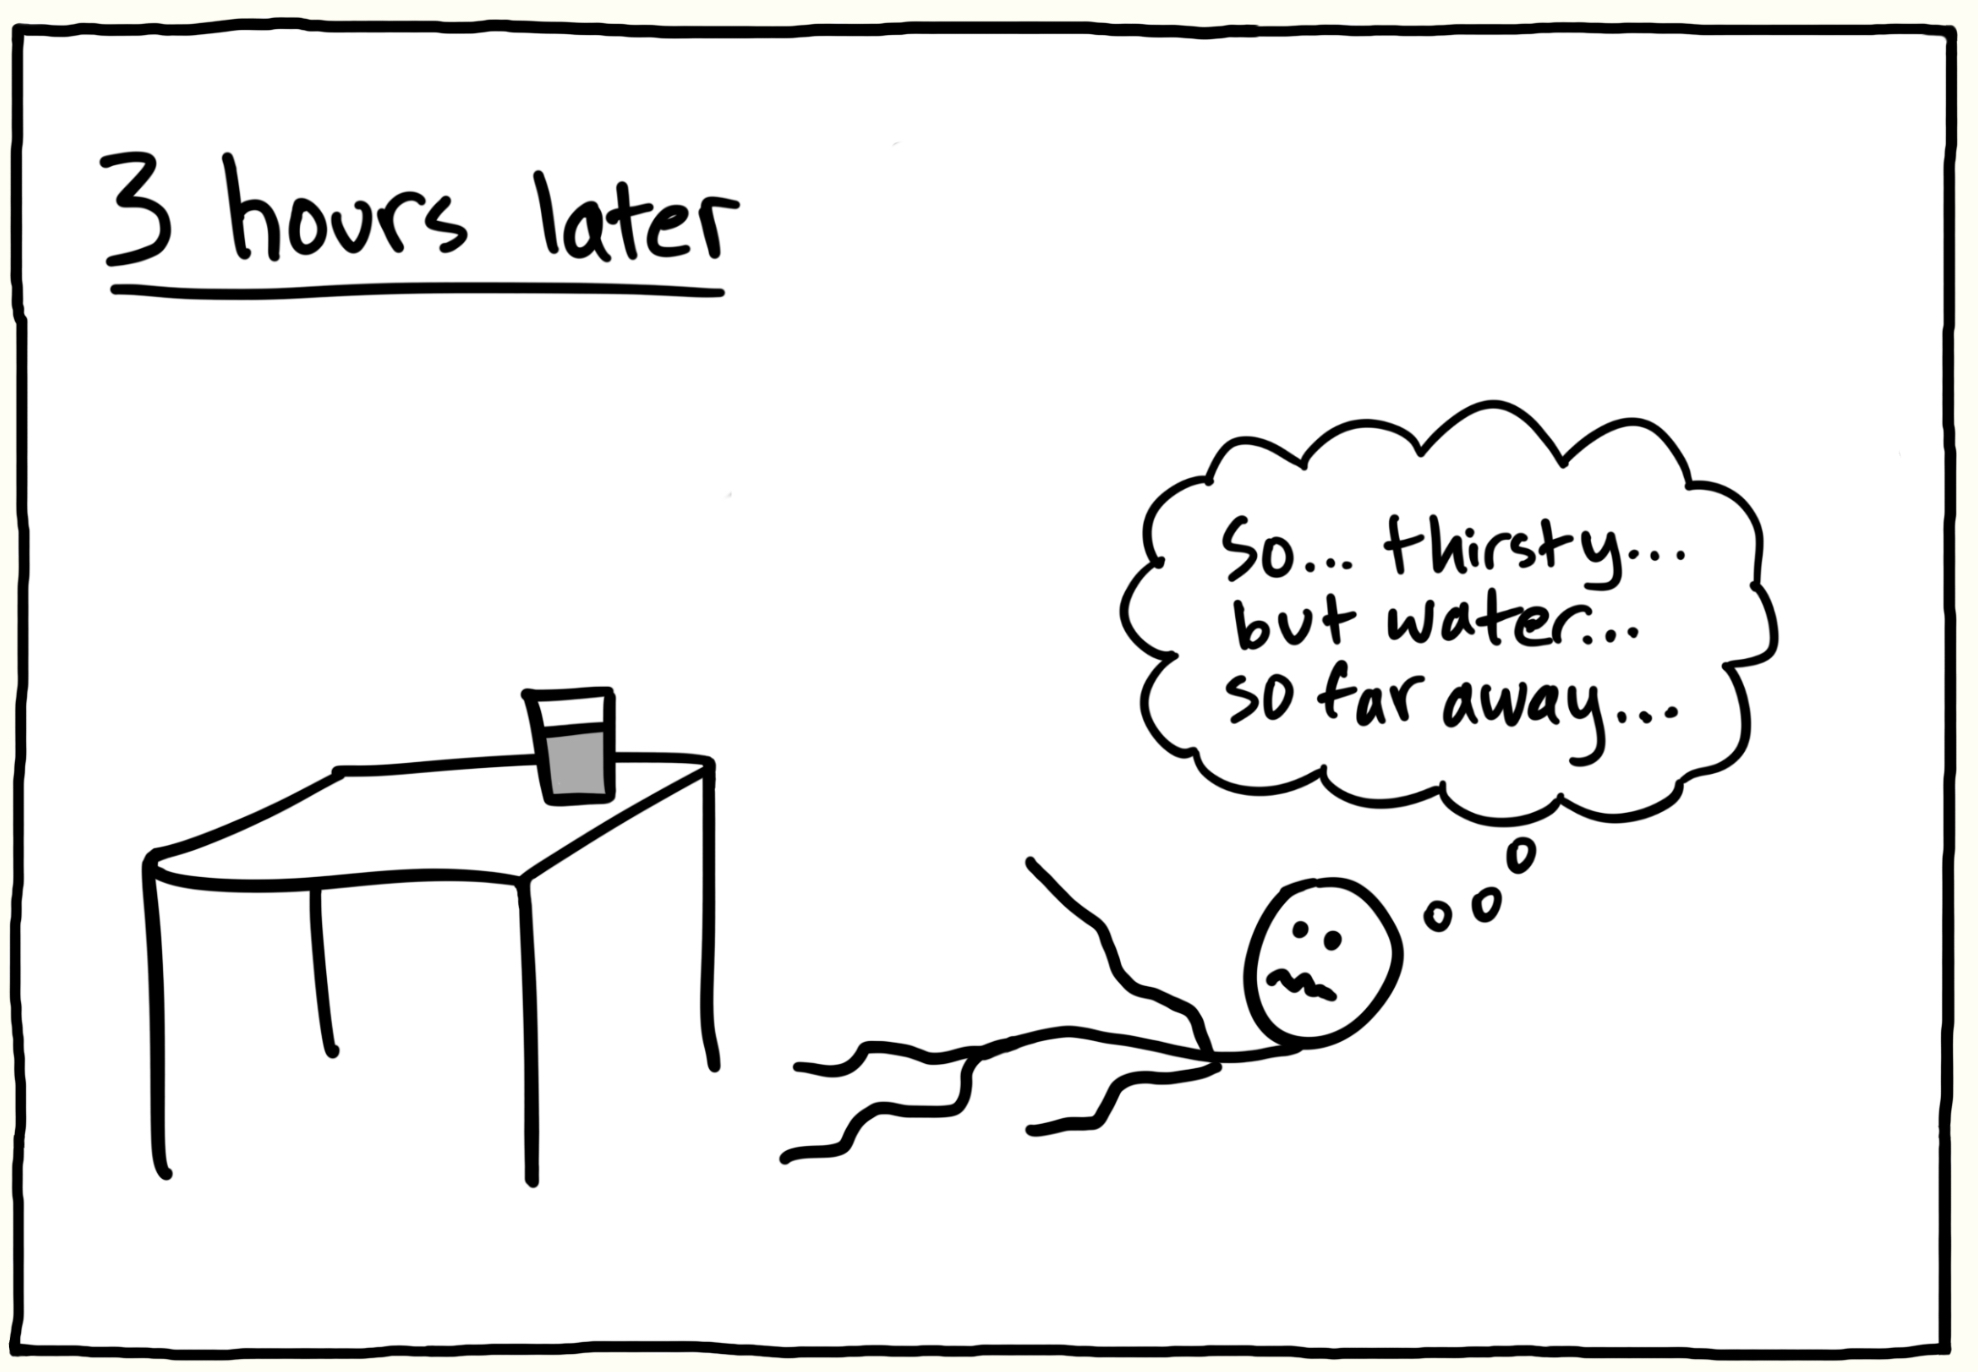 3 hours later
So... thirsty...
but water...
so far away...